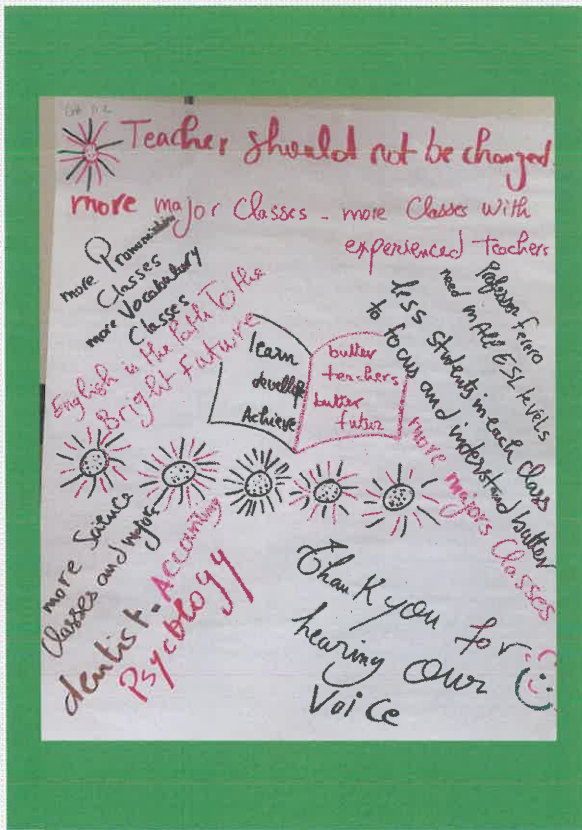 Teacher should not be changed.
more major Classes - more Classes with
experienced teachers
more Pronunciation
Classes
more Vocabulary
Classes
English is the Path To the
Bright Future
learn
develop
Achieve
butter
teachers
butter
futur
Professor Ferino
need in All ESL levels
less students in each class
to focus and understand butter
more majors Classes
more Science
Classes and major
dentist - Accounting
Psycology
Thank you for
hearing Our
Voice